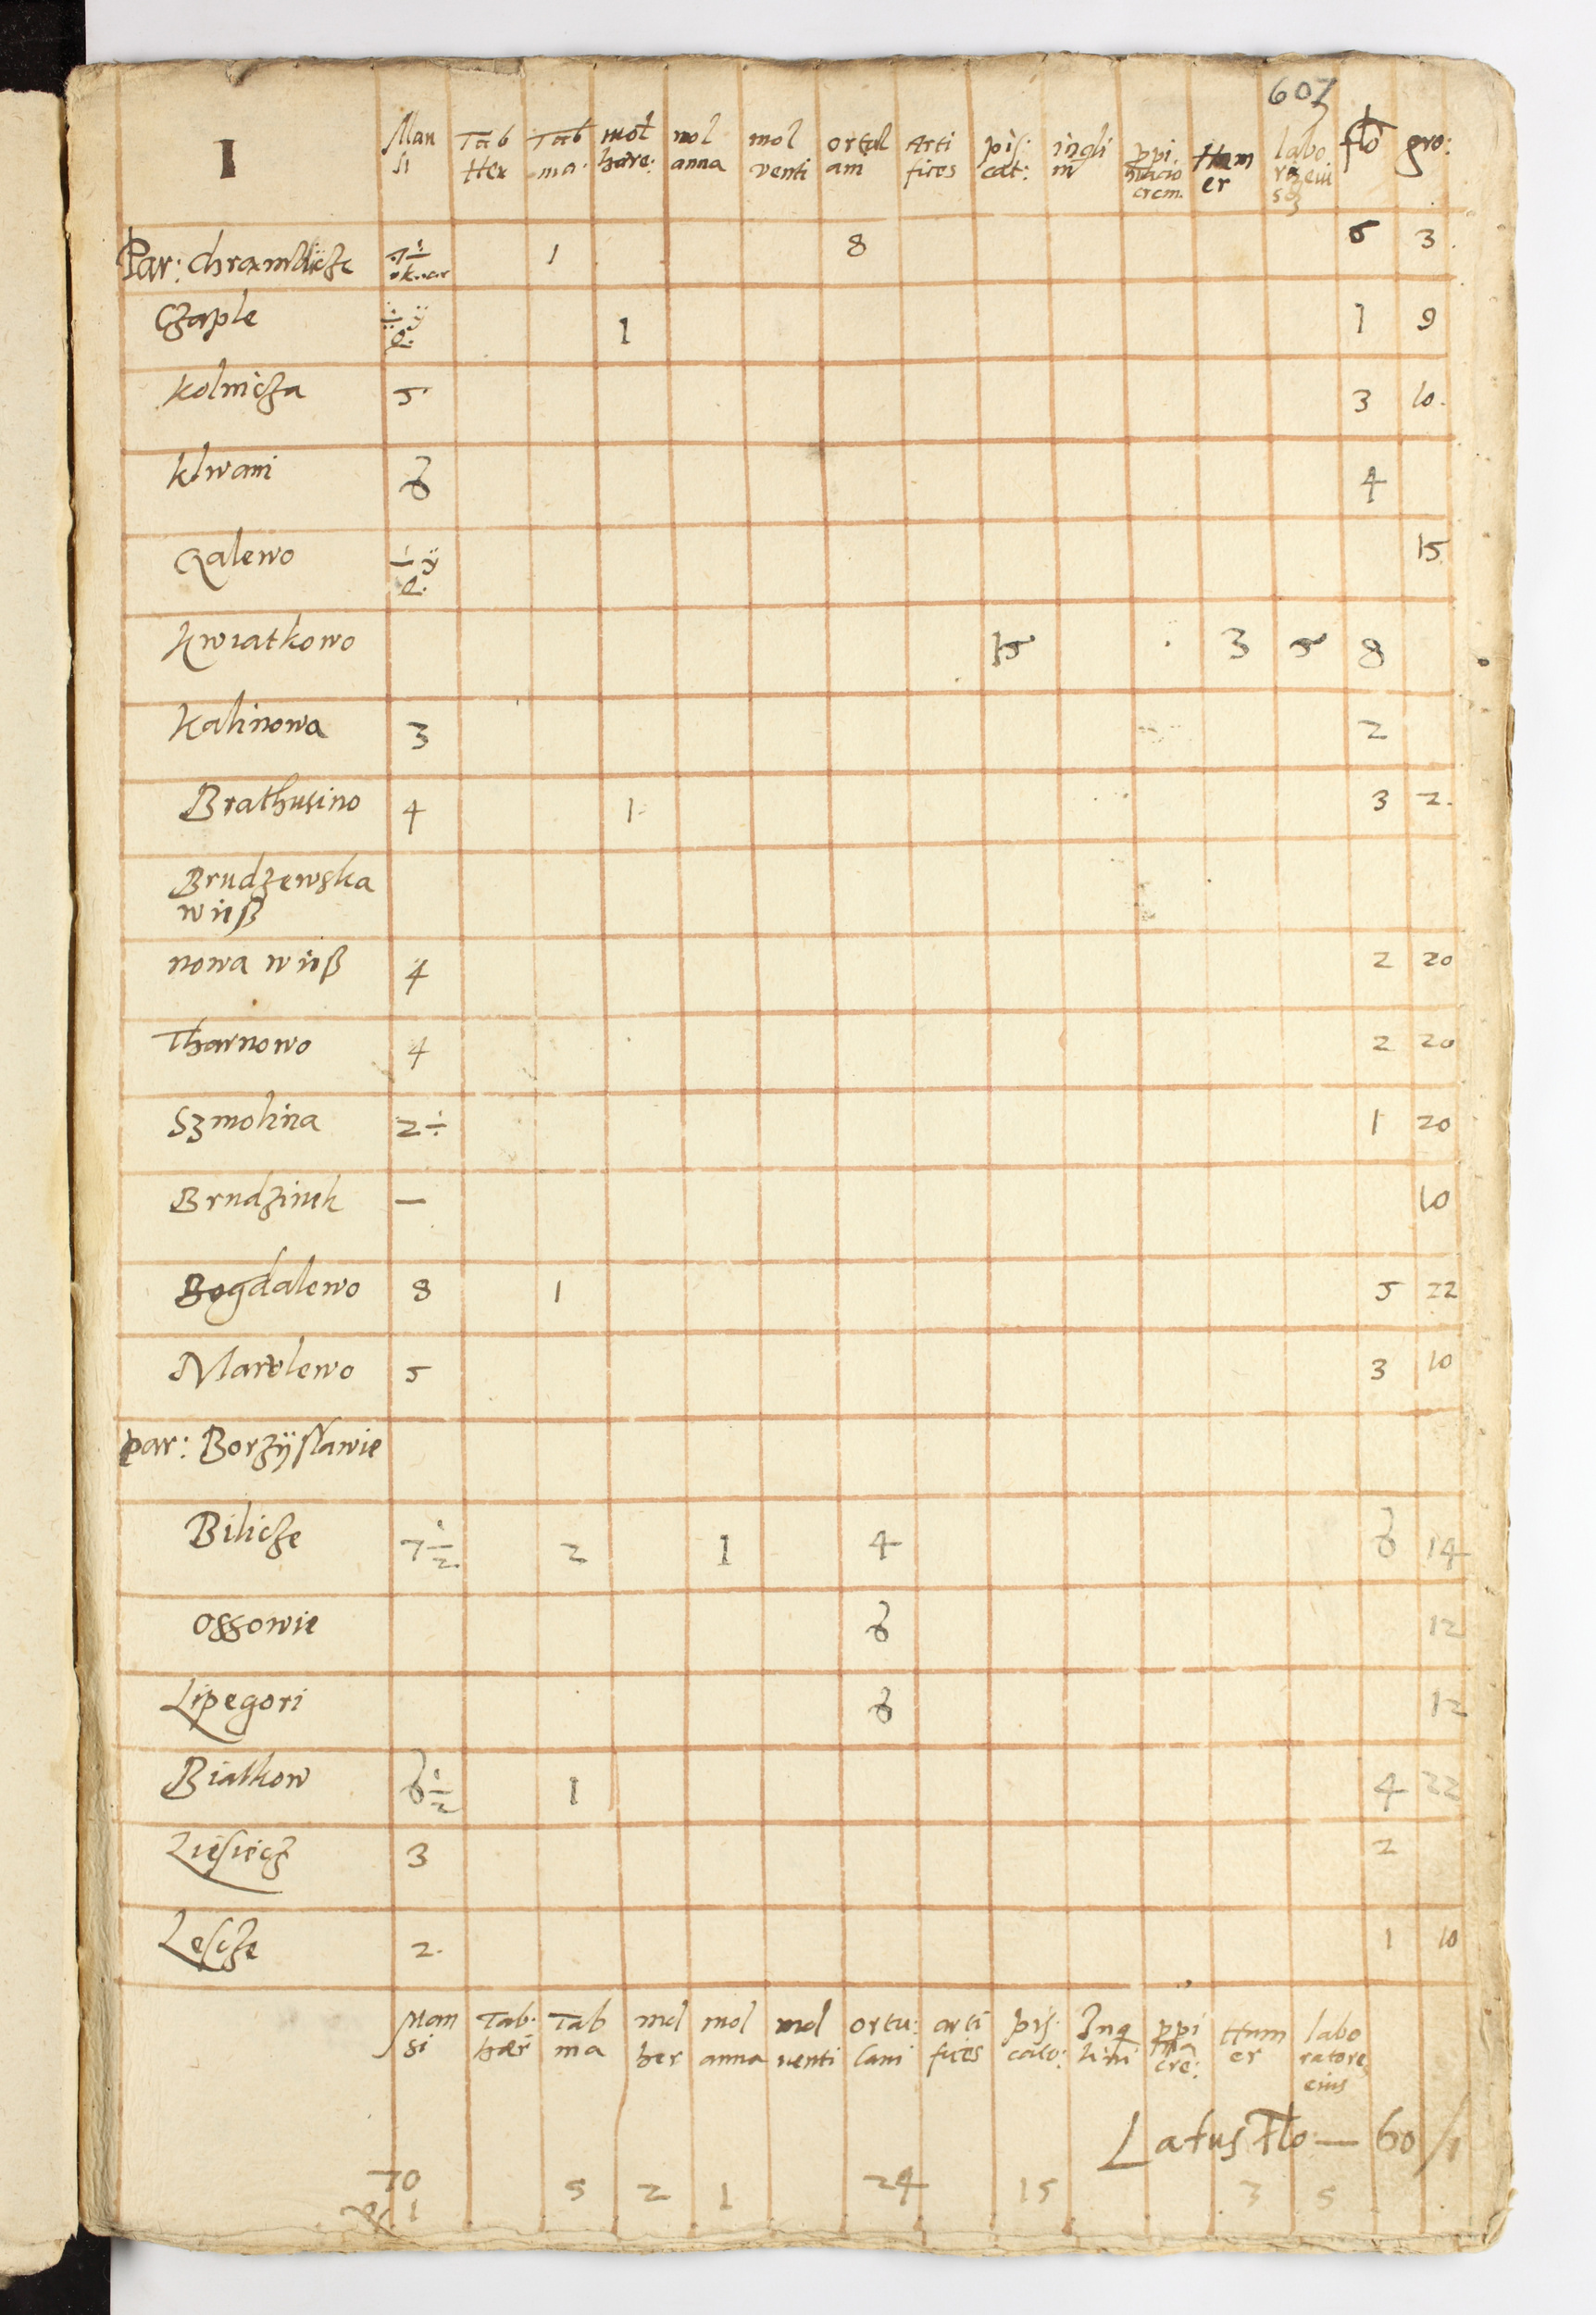 607
1 Man si Tab Her Tab ma. mol hære: mol anna mol venti ortul ani Arti fices pis: cat: inqli ni ppi. nacio crem. Ham er labo r eius flo gro:
Par: 7 1 8 5 3.
Czaple 1 1 9
Kolnicza 5 3 10.
Klwani 6 4
Zalewo 15
Kwiatkowo 15 3 5 8
Kalinowa 3 2
Brathusino 4 1 3 2.
Brudzewska
wiiß
nowa wiiß 4 2 20
Tharnowo 4 2 20
Szmolina 2÷ 1 20
Brudziuk — 10
Bogdalewo 8 1 5 22
Marelewo 5 3 10
par: Borzÿslawie
Bilicze 7 1/2 2 1 4 6 14
Ossowie 6 12
Lipegori 6 12
Bialkow 6 1/2 1 4 22
Ziesiecz 3 2
Lescze 2. 1 10
Man si Tab. hær Tab ma mol her mol anna mol venti ortu: lani arti fices pis: cato: Inq lini ppi na cre: Ham er labo ratore eius
Latus Flo — 60/1
70 5 2 1 24 15 3 5
1